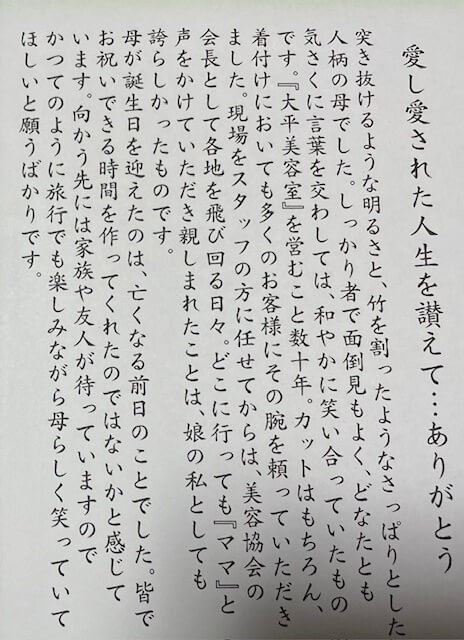 愛し愛された人生を讃えて…ありがとう
突き抜けるような明るさと、竹を割ったようなさっぱりとした
人柄の母でした。しっかり者で面倒見もよく、どなたとも
気さくに言葉を交わしては、和やかに笑い合っていたもの
です。『大平美容室』を営むこと数十年。カットはもちろん、
着付けにおいても多くのお客様にその腕を頼っていただき
ました。現場をスタッフの方に任せてからは、美容協会の
会長として各地を飛び回る日々。どこに行っても『ママ』と
声をかけていただき親しまれたことは、娘の私としても
誇らしかったものです。
母が誕生日を迎えたのは、亡くなる前日のことでした。皆で
お祝いできる時間を作ってくれたのではないかと感じて
います。向かう先には家族や友人が待っていますので
かつてのように旅行でも楽しみながら母らしく笑っていて
ほしいと願うばかりです。